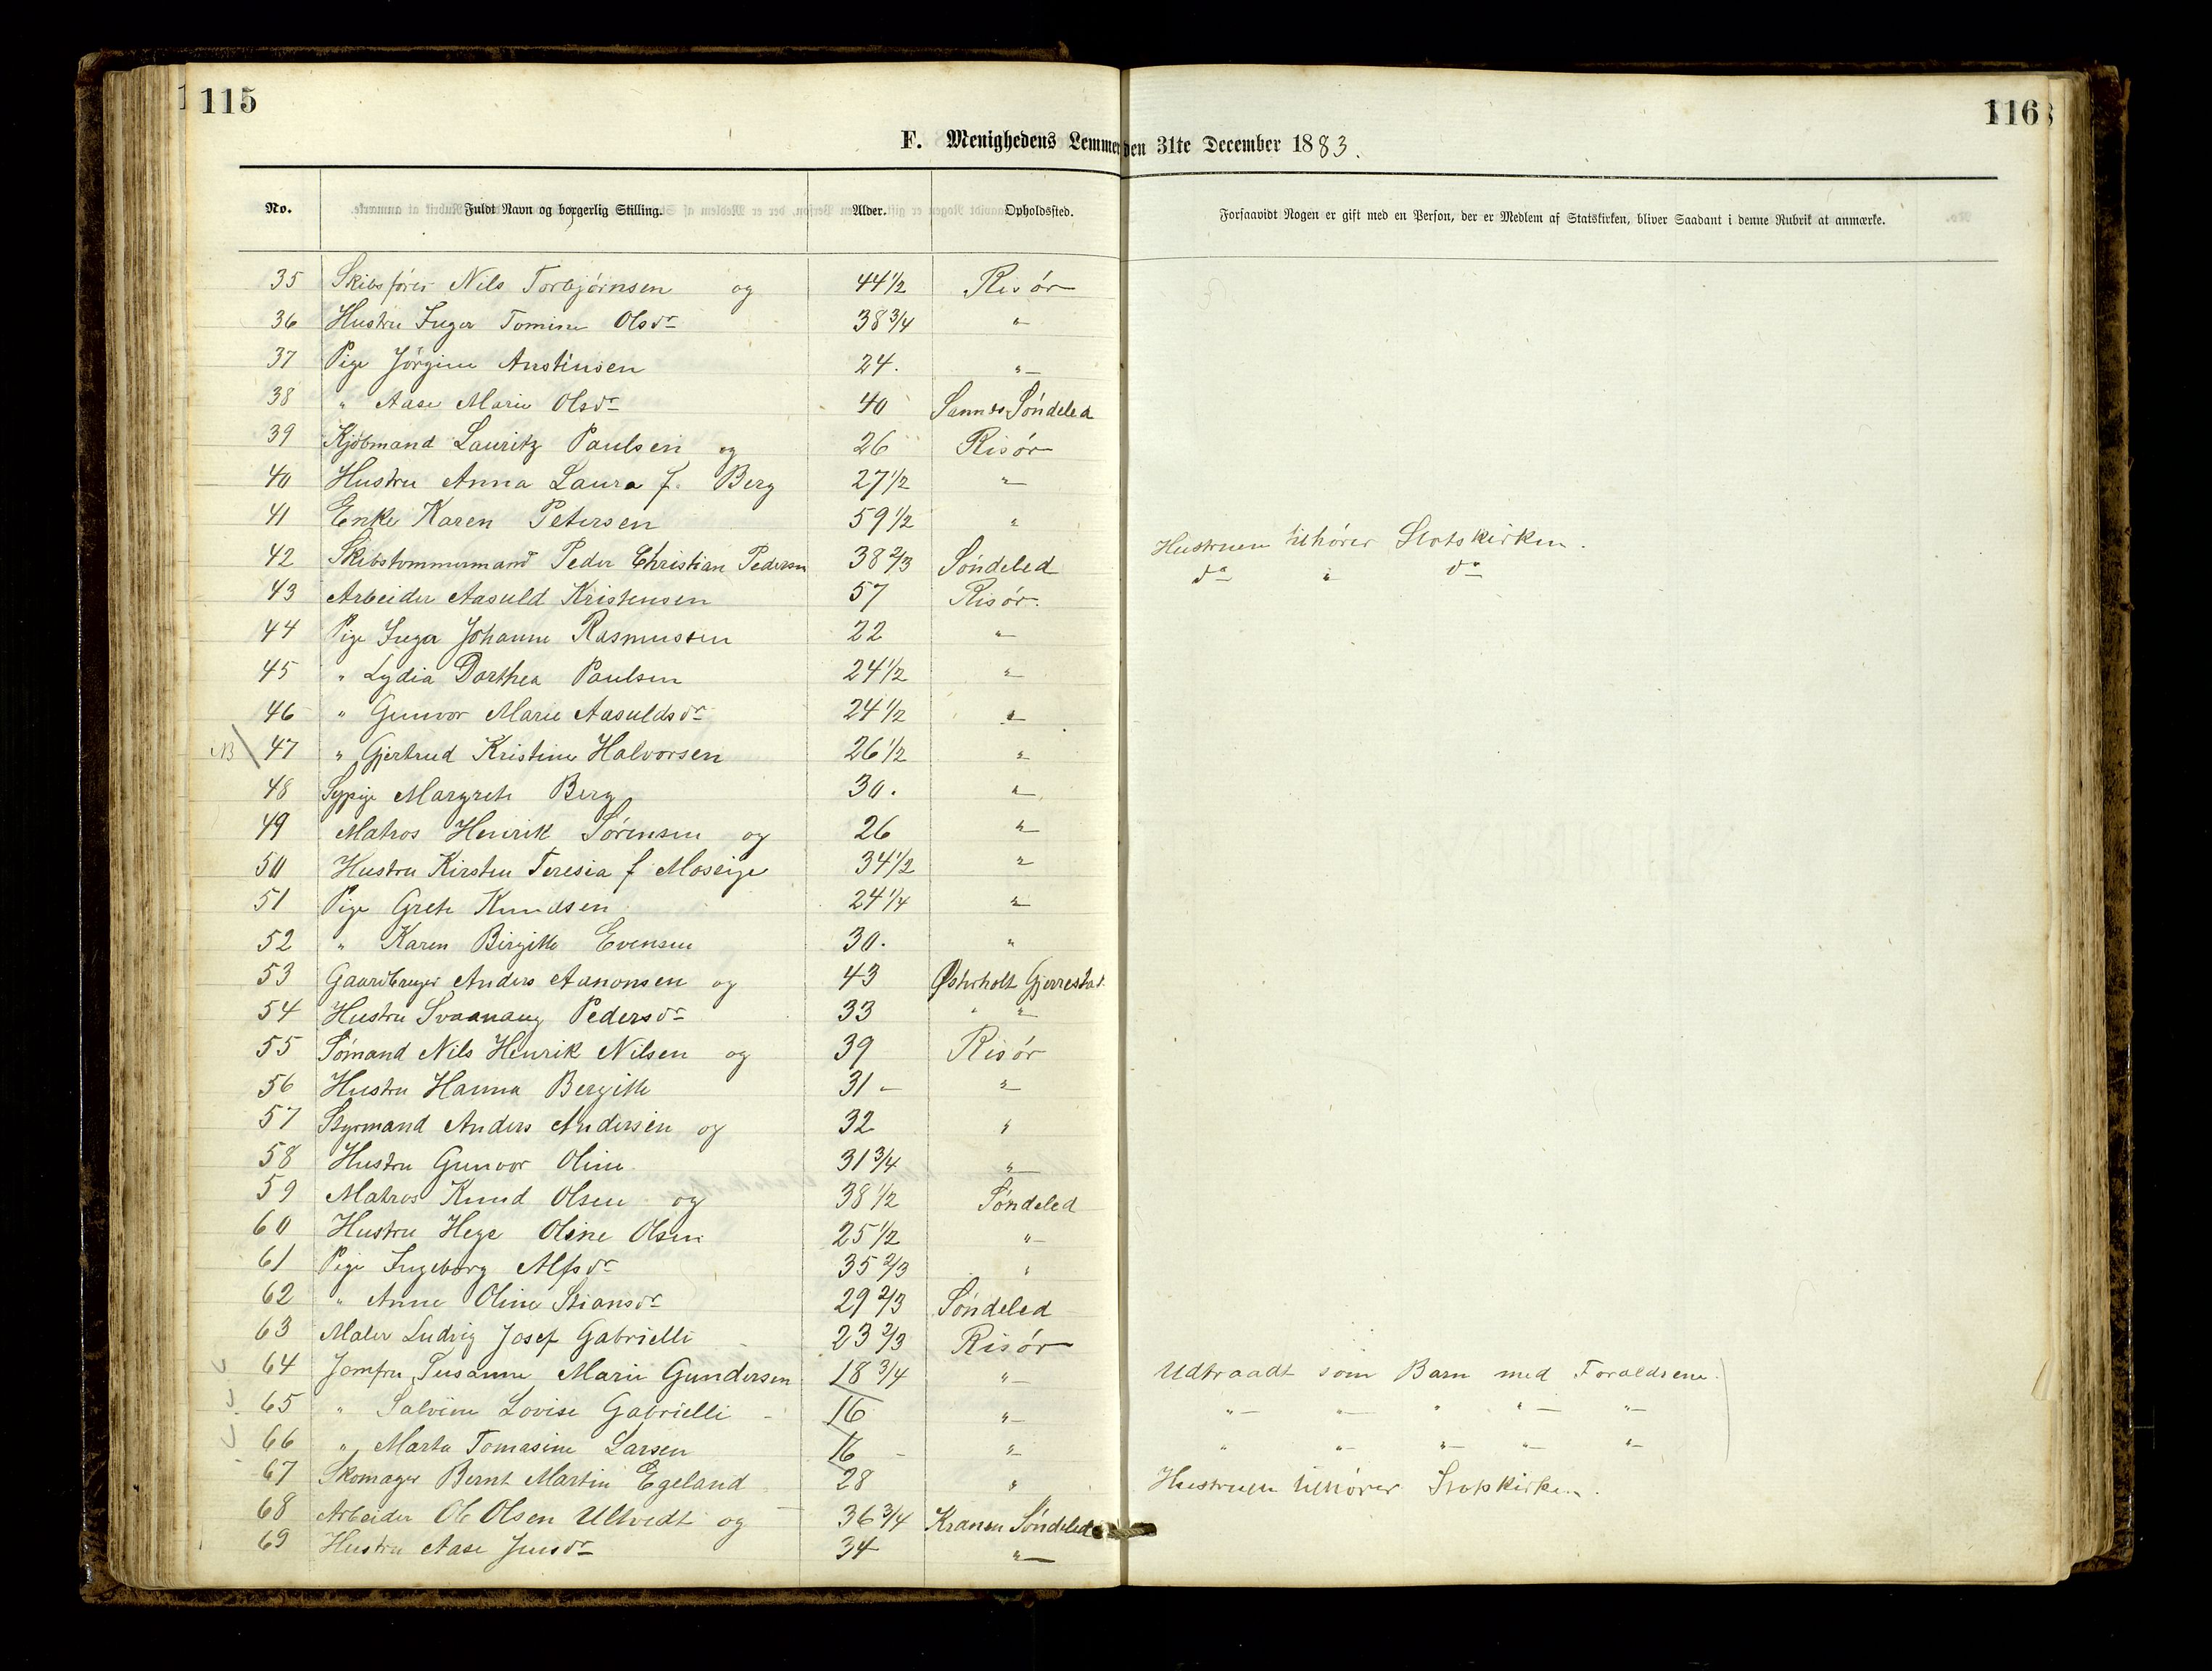 115
116
F. Menighedens Lemmer den 31te December 1883.
No. Fuldt Navn og borgerlig Stilling. Alder. Opholdssted. Forsaavidt Nogen er gift med en Person, der er Medlem af Statskirken, bliver Saadant i denne Rubrik at anmærke.
35 Skibsfører Nils Torbjørnsen og 44 1/2 Risör
36 Hustru Inger Tomine Olsdr 38 3/4 "
37 Pige Jörgine Austinsen 24. "
38 " Aase Marie Olsdr 40 Sannes Söndeled
39 Kjöbmand Lauritz Paulsen og 26 Risör
40 Hustru Anna Laura f. Berg 27 1/2 "
41 Enke Karen Petersen 59 1/2 "
42 Skibstømmermand Peder Christian Pedersen 38 2/3 Söndeled Hustruen tilhörer Statskirken.
43 Arbeider Aasuld Kristensen 57 Risör. do " do
44 Pige Inger Johanne Rasmussen 22 "
45 " Lydia Dorthea Paulsen 24 1/2 "
46 " Gunvor Marie Aasuldsdr 24 1/2 "
NB 47 " Gjertrud Kristine Halvorsen 26 1/2 "
48 Sypige Margrete Berg 30. "
49 Matros Henrik Sörensen og 26 "
50 Hustru Kirsten Teresia f Moseige 34 1/2 "
51 Pige Grete Knudsen 24 1/4 "
52 " Karen Birgitte Evensen 30. "
53 Gaardbruger Anders Aanonsen og 43 Østerholt Gjerrestad
54 Hustru Svaanaug Pedersdr 33 " "
55 Sömand Nils Henrik Nilsen og 39 Risör
56 Hustru Hanna Bergitte 31 - "
57 Styrmand Anders Andersen og 32 "
58 Hustru Gunvor Oline 31 3/4 "
59 Matros Knud Olsen og 38 1/2 Söndeled
60 Hustru Hege Oline Olsen 25 1/2 "
61 Pige Ingeborg Alfsdr 35 2/3 "
62 " Anne Oline Stiansdr 29 2/3 Söndeled
63 Maler Ludvig Josef Gabrielli 23 2/3 Risör
64 Jomfru Susanne Marie Gundersen 18 3/4 " Udtraadt som Barn med Forældrene.
65 " Salvine Lovise Gabrielli - 16 " " " " " "
66 " Marta Tomasine Larsen 16 - " " " " " "
67 Skomager Bernt Martin Egeland 28 " Hustruen tilhörer Statskirken.
68 Arbeider Ole Olsen Ultvedt og 36 3/4 Kranen Söndeled
69 Hustru Aase Jensdr 34 "